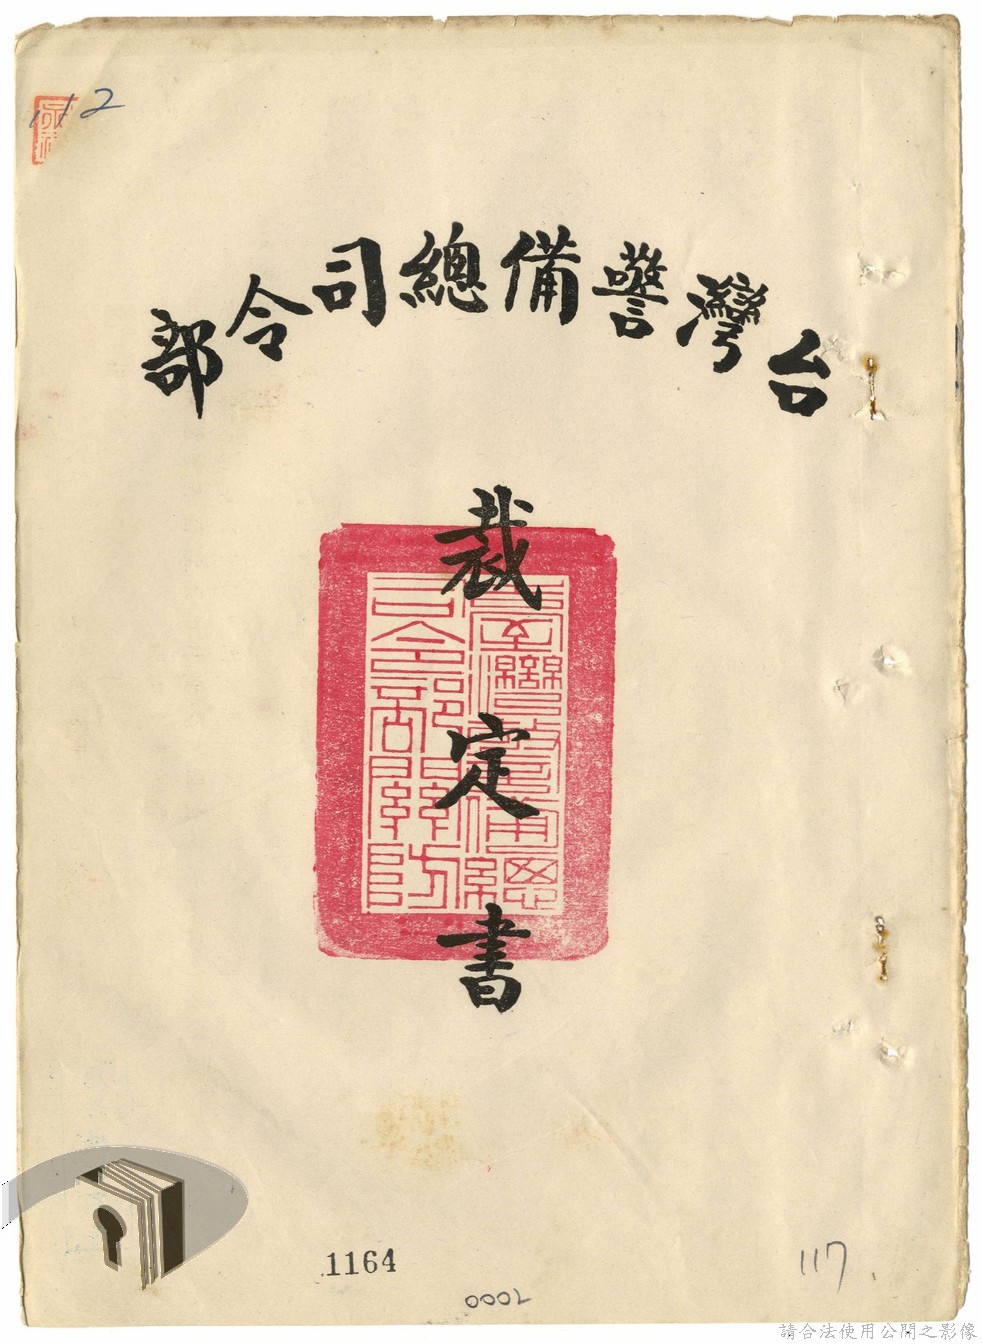 112
台灣警備總司令部
裁定書
臺灣警備總
司令部關防
1164
117
0002
請合法使用公開之影像